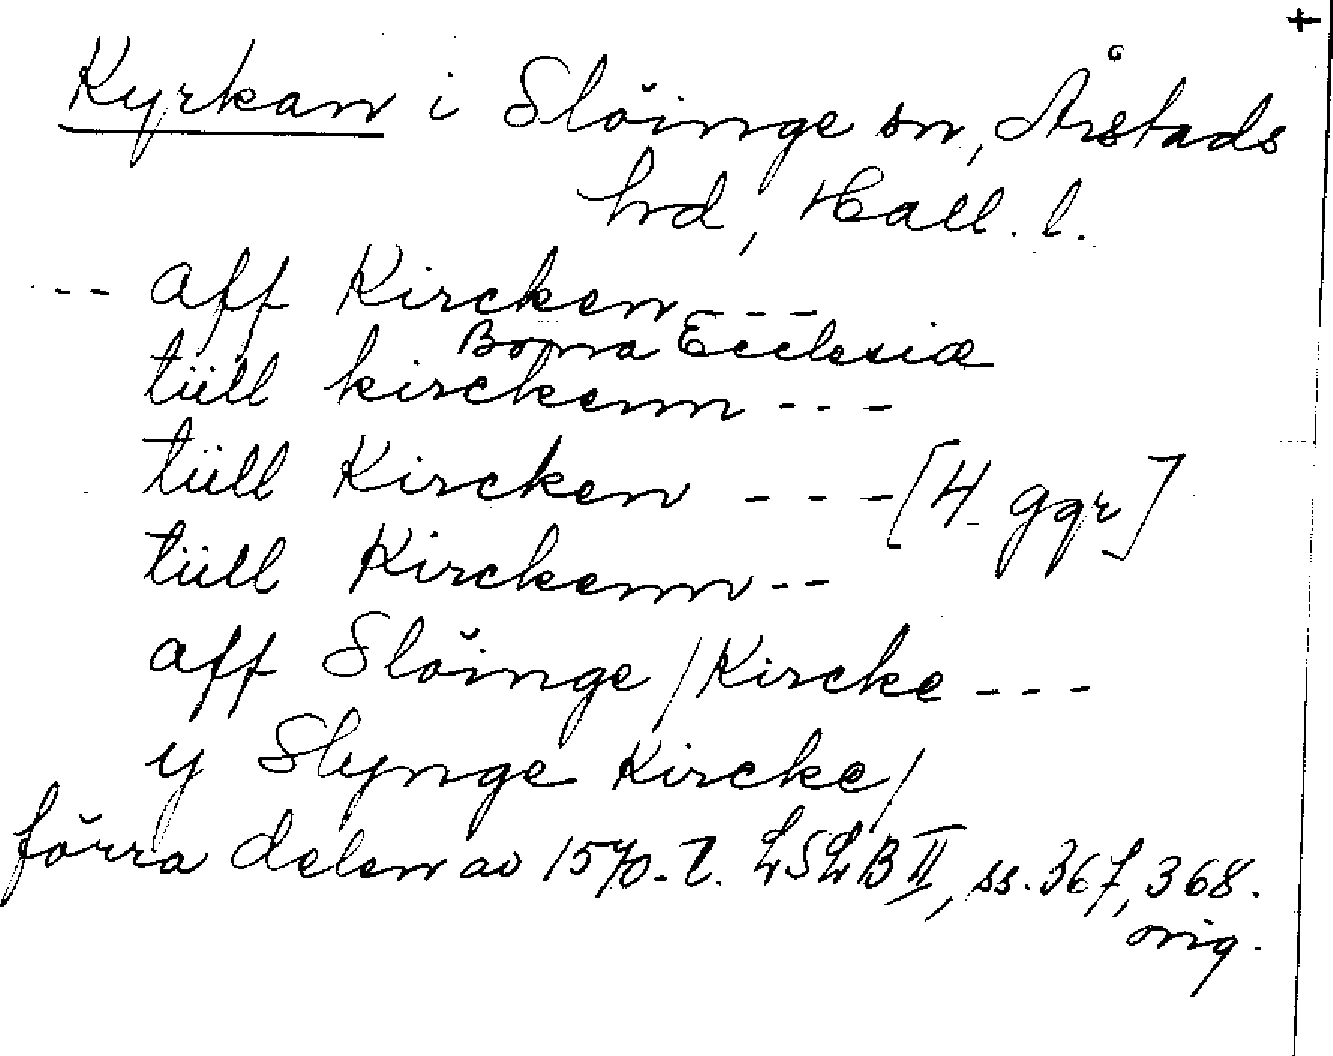 +
Kyrkan i Slöinge sn, Årstads
hrd, Hall. l.
--- aff Kircken ---
Bonna Ecclesiæ
tüll kirckenn ---
tüll Kircken --- [4 ggr]
tüll Kirckenn --
aff Slöinge / Kircke ---
y Slynge Kircke /
förra delen av 1570-t. LSLB II, ss. 367, 368.
orig.